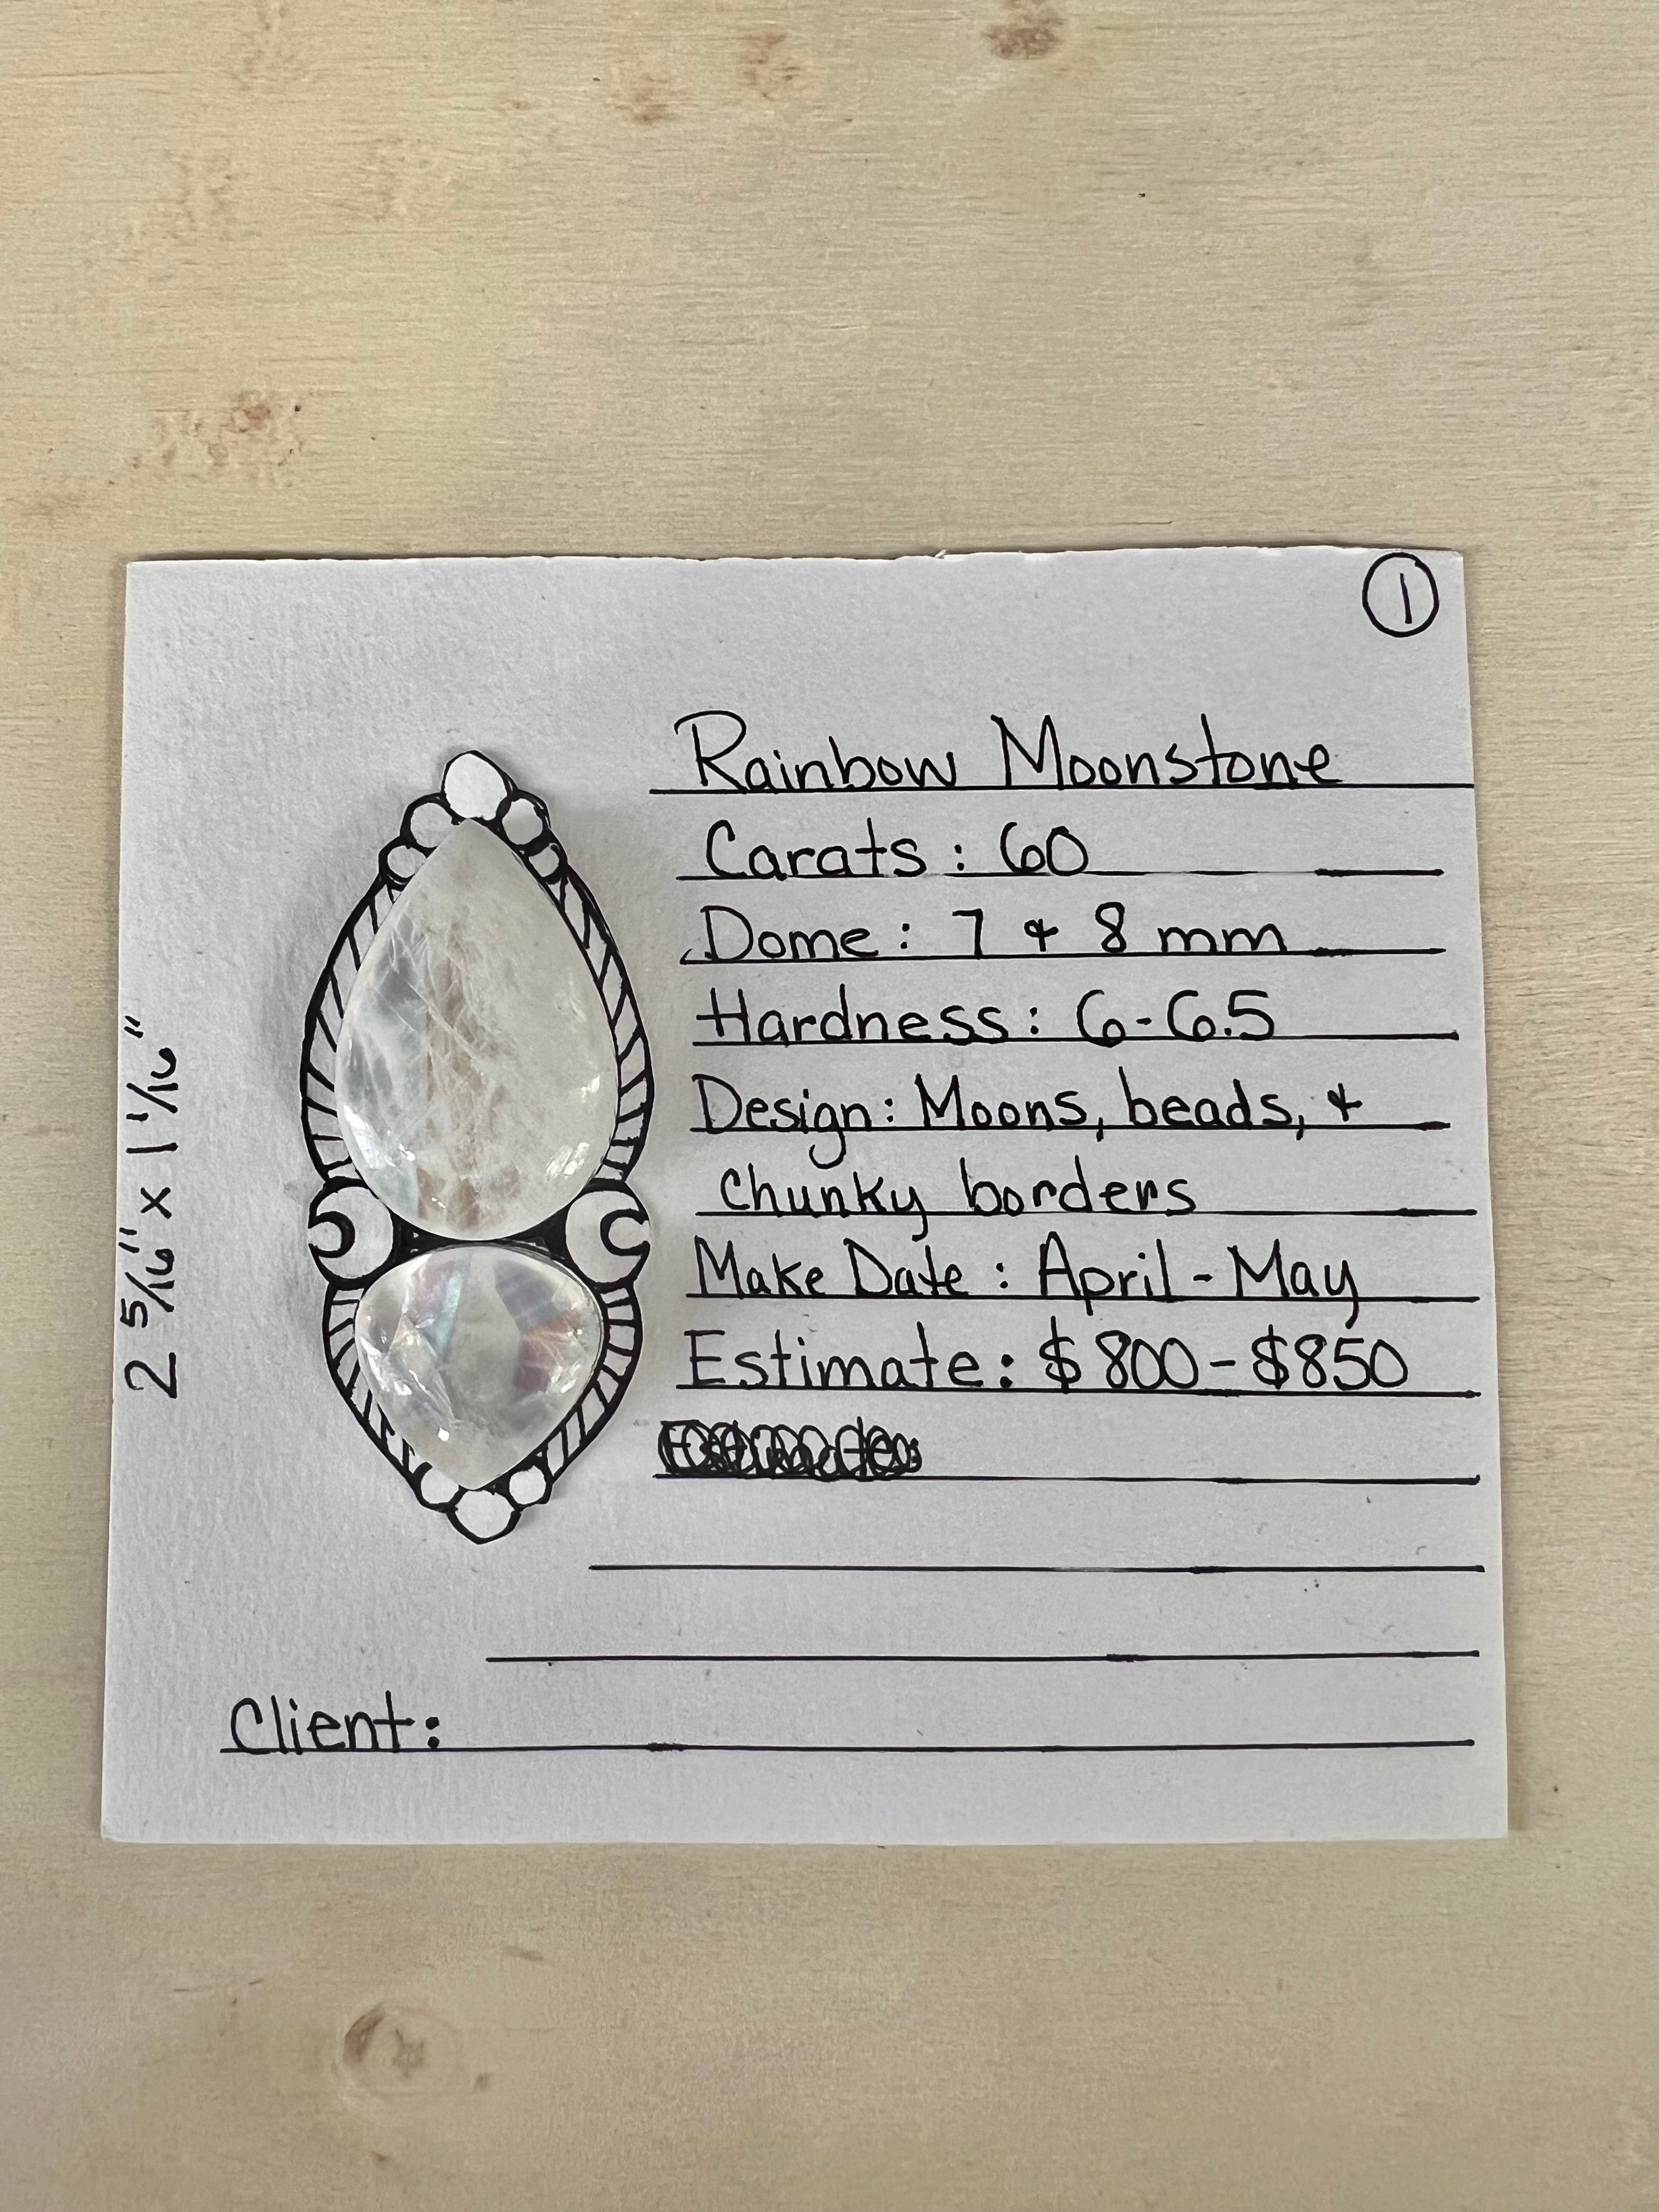 1
Rainbow Moonstone
Carats: 60
Dome: 7 & 8 mm
Hardness: 6-6.5
Design: Moons, beads, &
Chunky borders
Make Date: April-May
Estimate: $800-$850
Client:
2 5/16" x 1 1/16"